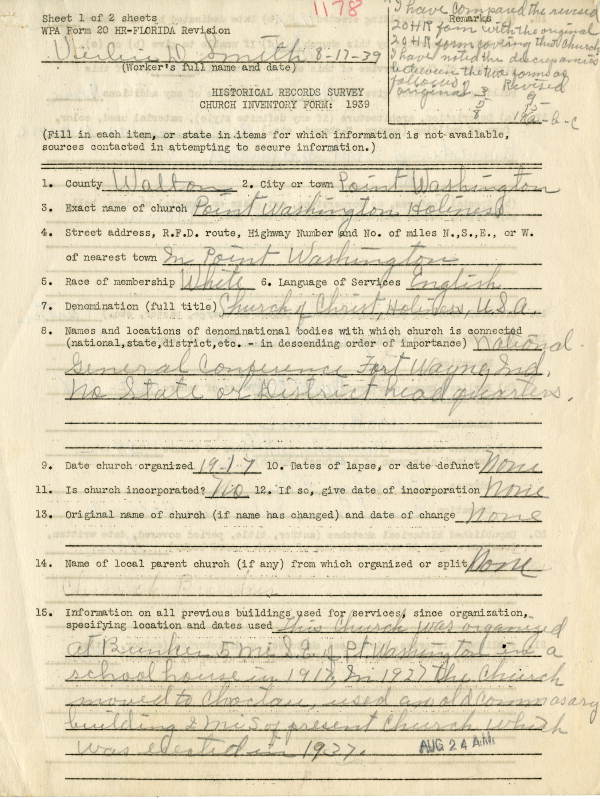 Sheet 1 of 2 sheets
1178
WPA Form 20 HR-FLORIDA Revision
D. Smith 8-17-39
(Worker's full name and date)
Remarks
I have compared the revised
20 HR form with the original
20 HR form covering this Church
I have noted the discrepancies
between the two forms as
follows;
original Revised
3
5 5
8 19a-b-c
HISTORICAL RECORDS SURVEY
CHURCH INVENTORY FORM: 1939
(Fill in each item, or state in items for which information is not available,
sources contacted in attempting to secure information.)
1. County Walton 2. City or town Point Washington
3. Exact name of church Point Washington Holiness
4. Street address, R.F.D. route, Highway Number and No. of miles N.,S.,E., or W.
of nearest town In Point Washington
5. Race of membership White 6. Language of Services English
7. Denomination (full title) Church of Christ, Holiness, U.S.A.
8. Names and locations of denominational bodies with which church is connected
(national,state,district,etc. - in descending order of importance) National
General Conference Fort Wayne, Ind.
No State or District headquarters.
9. Date church organized 1917 10. Dates of lapse, or date defunct None
11. Is church incorporated? No 12. If so, give date of incorporation None
13. Original name of church (if name has changed) and date of change None
14. Name of local parent church (if any) from which organized or split None
15. Information on all previous buildings used for services, since organization,
specifying location and dates used This Church was organized
at Bunker 5 mi S.E. of Pt Washington in a
school house in 1917. In 1927 the Church
moved to Choctaw, used an old commasary
building 2 mi S of present Church which
was erected in 1937.
AUG 24 A.M.